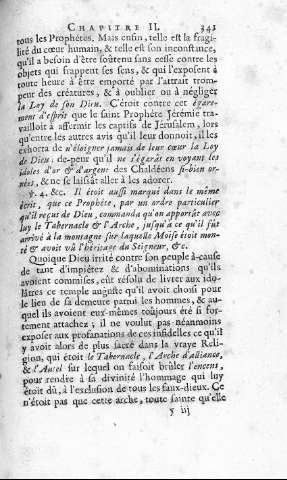 CHAPITRE II. 341
tous les Prophétes. Mais enfin, telle est la fragi-
lité du cœur humain, & telle est son inconstance,
qu'il a besoin d'être soûtenu sans cesse contre les
objets qui frappent ses sens, & qui l'exposent à
toute heure à être emporté par l'attrait trom-
peur des créatures, & à oublier ou à négliger
la Loy de son Dieu. C'étoit contre cet égare-
ment d'esprit que le saint Prophéte Jérémie tra-
vailloit à affermir les captifs de Jérusalem, lors
qu'entre les autres avis qu'il leur donnoit, il les
exhorta de n'éloigner jamais de leur cœur la Loy
de Dieu, de-peur qu'il ne s'égarât en voyant les
idoles d'or & d'argent des Chaldéens si-bien or-
nées, & ne se laissât aller à les adorer.
ý. 4. &c. Il étoit aussi marqué dans le même
écrit, que ce Prophéte, par un ordre particulier
qu'il reçut de Dieu, commanda qu'on apportât avec
luy le Tabernacle & l'Arche, jusqu'à ce qu'il fût
arrivé à la montagne sur laquelle Moïse étoit mon-
té & avoit vû l'héritage du Seigneur, &c.
Quoique Dieu irrité contre son peuple à-cause
de tant d'impiétez & d'abominations qu'ils
avoient commises, eût résolu de livrer aux ido-
lâtres ce temple auguste qu'il avoit choisi pour
le lieu de sa demeure parmi les hommes, & au-
quel ils avoient eux-mêmes toûjours été si for-
tement attachez ; il ne voulut pas néanmoins
exposer aux profanations de ces infidelles ce qu'il
y avoit alors de plus sacré dans la vraye Reli-
gion, qui étoit le Tabernacle, l'Arche d'alliance,
& l'Autel sur lequel on faisoit brûler l'encens,
pour rendre à sa divinité l'hommage qui luy
étoit dû, à l'exclusion de tous les faux-dieux. Ce
n'étoit pas que cette arche, toute sainte qu'elle
y iij